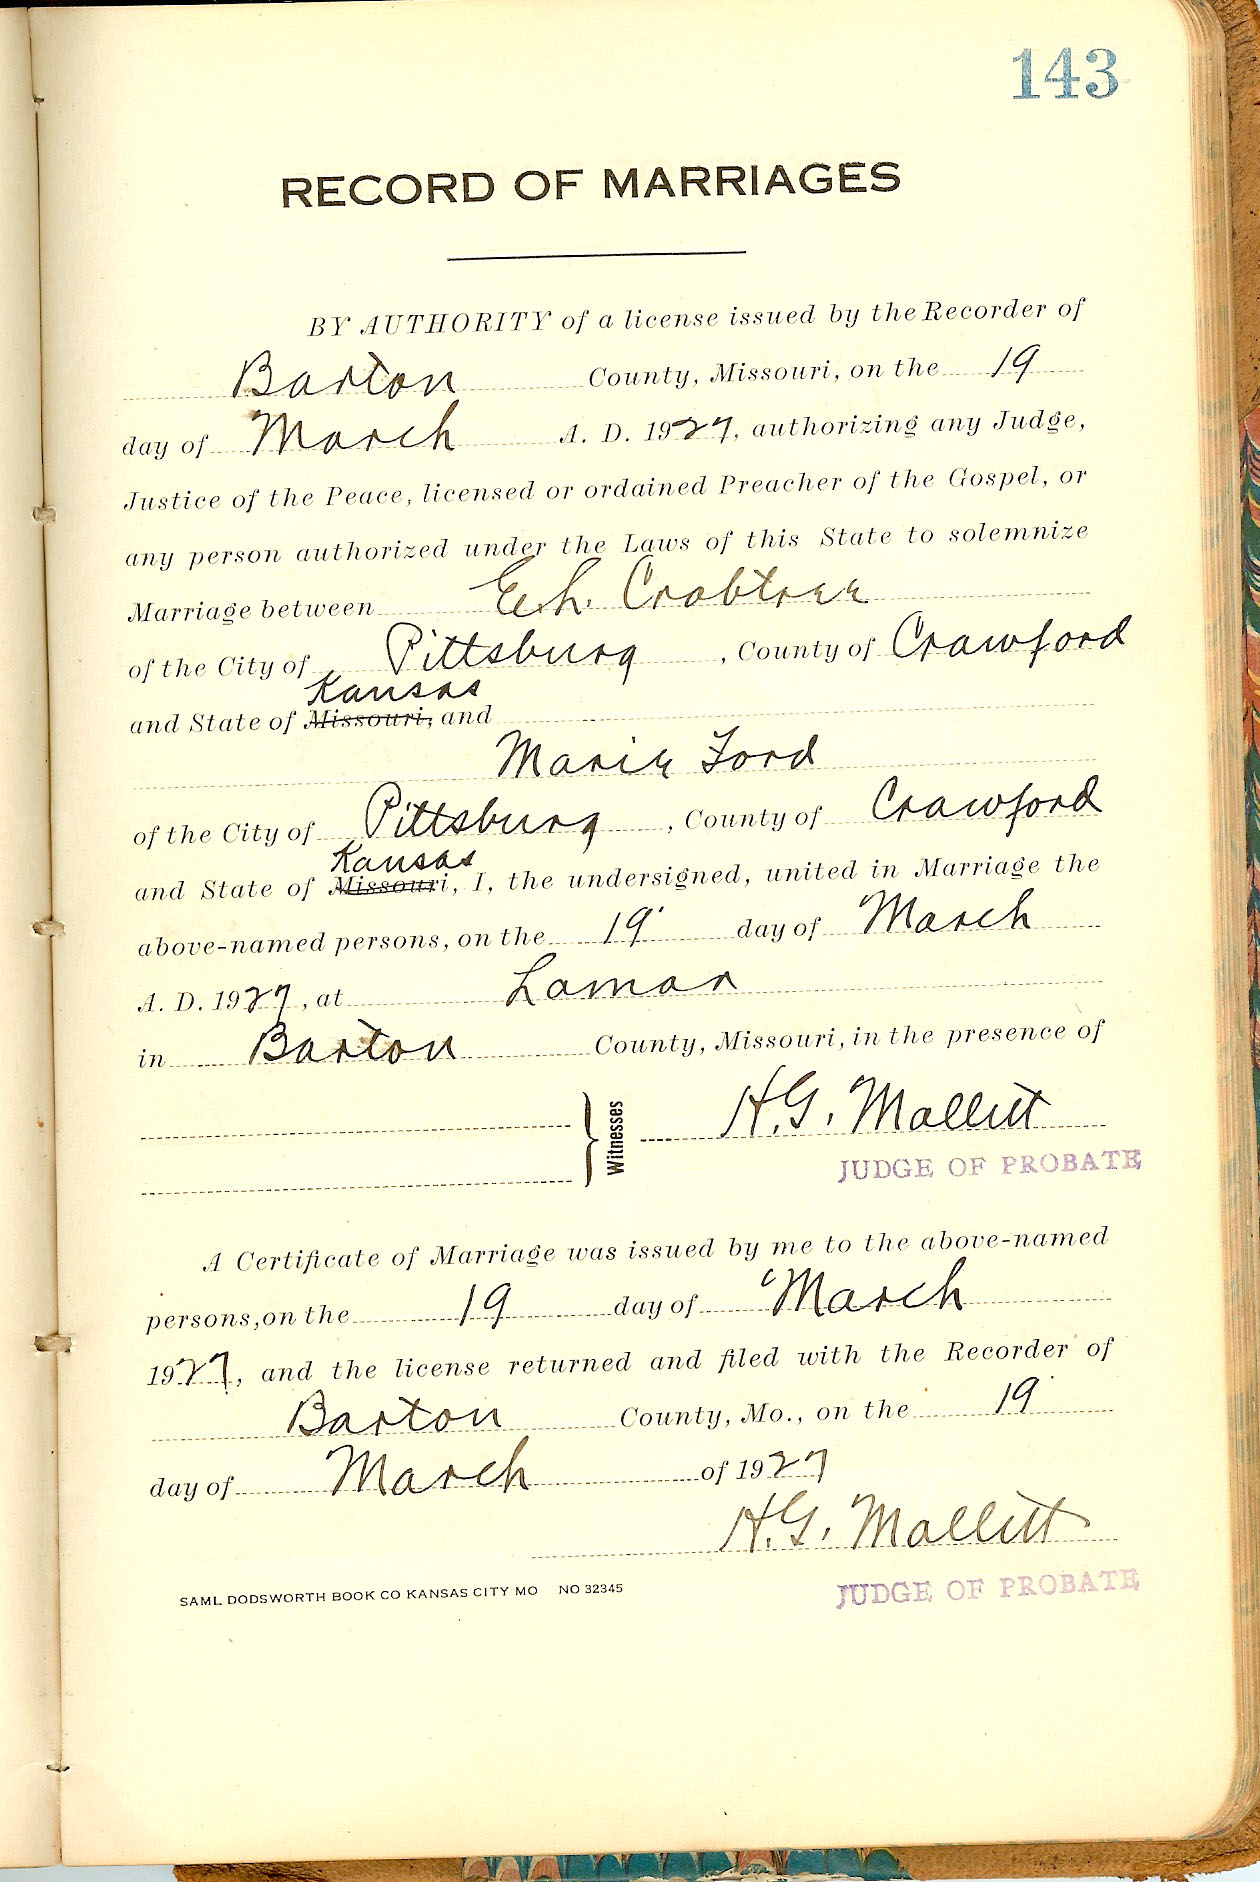 143
RECORD OF MARRIAGES
BY AUTHORITY of a license issued by the Recorder of
Barton County, Missouri, on the 19
day of March A. D. 1927, authorizing any Judge,
Justice of the Peace, licensed or ordained Preacher of the Gospel, or
any person authorized under the Laws of this State to solemnize
Marriage between E.L. Crabtree
of the City of Pittsburg, County of Crawford
Kansas
and State of Missouri, and
Marie Ford
of the City of Pittsburg, County of Crawford
Kansas
and State of Missouri, I, the undersigned, united in Marriage the
above-named persons, on the 19 day of March
A. D. 1927, at Lamar
in Barton County, Missouri, in the presence of
Witnesses H.G. Mallitt
JUDGE OF PROBATE
A Certificate of Marriage was issued by me to the above-named
persons, on the 19 day of March
1927, and the license returned and filed with the Recorder of
Barton County, Mo., on the 19
day of March of 1927
H.G. Mallitt
SAML DODSWORTH BOOK CO KANSAS CITY MO NO 32345
JUDGE OF PROBATE